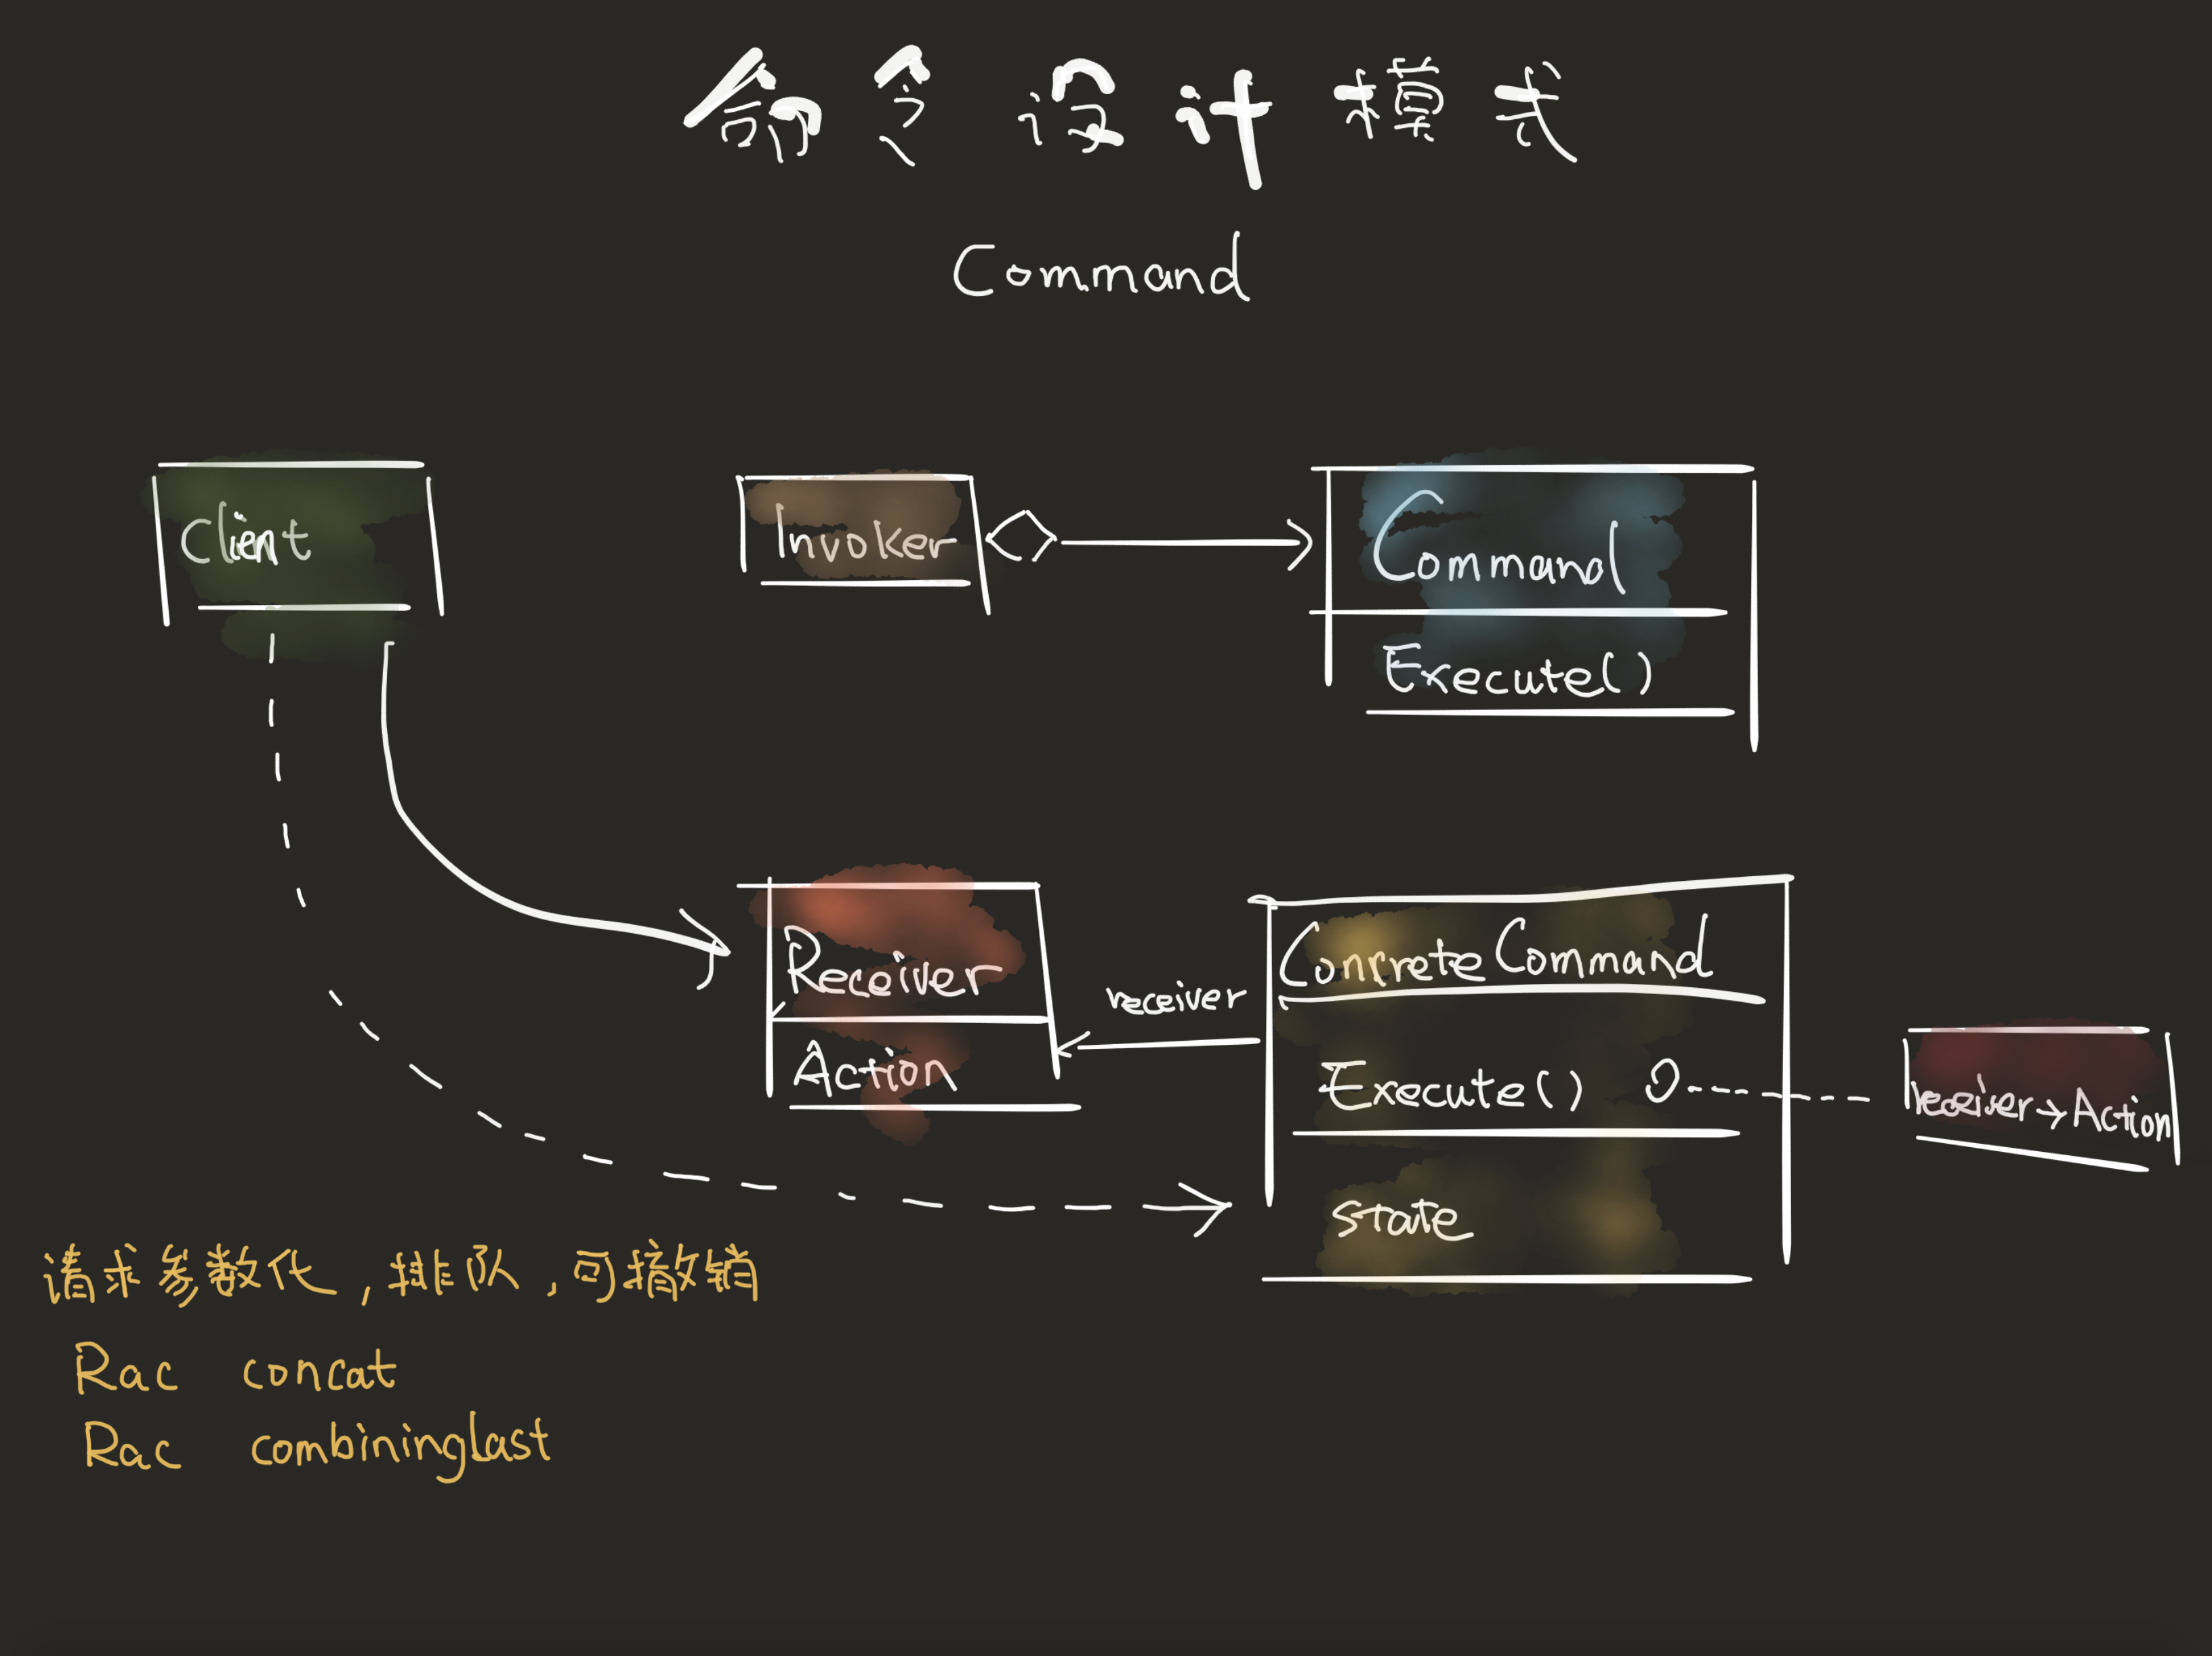 命令设计模式
Command
Client
Invoker
Command
Execute()
Receiver
Action
receiver
ConcreteCommand
Execute()
state
receiver→Action
请求参数化,排队,可撤销
Rac concat
Rac combininglast